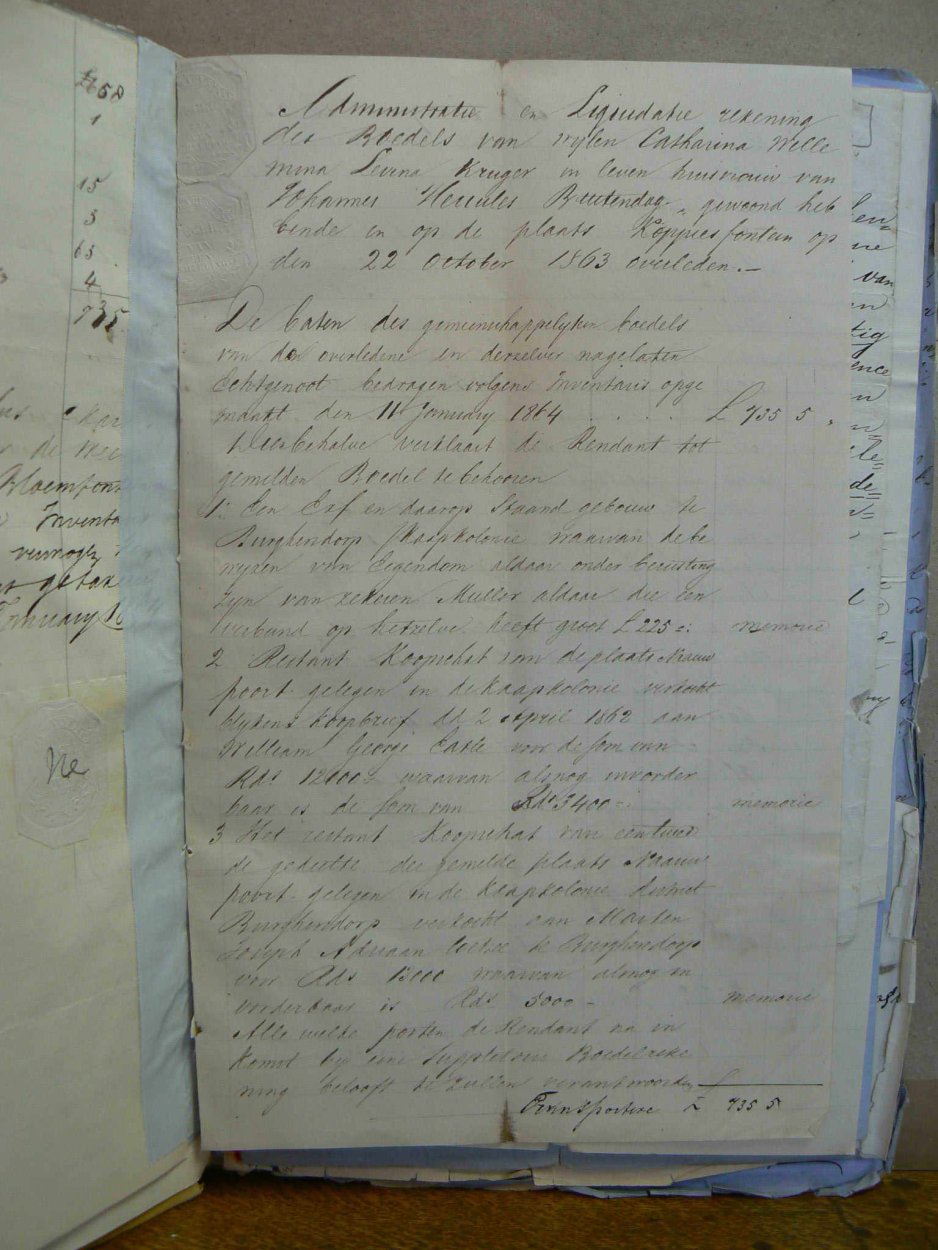 £ 658
1
15
5
65
4
735
de
Bloemfont
Inventa
vermogen
getax
January 18
Ne
Administratie en Liquidatie rekening
des Boedels van wylen Catharina Wille
mina Levina Kruger in leven huisvrouw van
Johannes Hercules Buitendag, gewoond heb
bende en op de plaats Koppiesfontein op
den 22 October 1863 overleden.—
De baten des gemeenschappelyken boedels
van den overledene en derzelver nagelaten
Echtgenoot bedragen volgens Inventaris opge
maakt den 11 January 1864 . . . . . £ 735 5 „
Derbehalve verklaart de Rendant tot
gemelden Boedel te behooren
1: Een Erf en daarop Staand gebouw te
Burghersdorp /Kaapkolonie waarvan de be
wyzen van Eigendom aldaar onder berusting
zyn van zekeren Muller aldaar die een
verband op hetzelve heeft groot £ 225 =: memorie
2 Restant Koopschat van de plaats Naauw
poort gelegen in de Kaapkolonie verkocht
blykens Koopbrief dd 2 April 1862 aan
William George Castle voor de som van
Rds 12000 - waarvan alsnog invorder
baar is de som van Rds 3400 - memorie
3 Het restant Koopschat van een twee
de gedeelte der gemelde plaats Naauw
poort gelegen in de Kaapkolonie district
Burghersdorp verkocht aan Marten
Joseph Adriaan Coetze te Burghersdorp
voor Rds 13000 waarvan alsnog in
vorderbaar is Rds 5000 - memorie
Alle welke posten de Rendant na in
komst by eene Suppletoire Boedelreke
ning belooft te zullen verantwoorden
Transportere £ 735 5
van
tig
ence
de